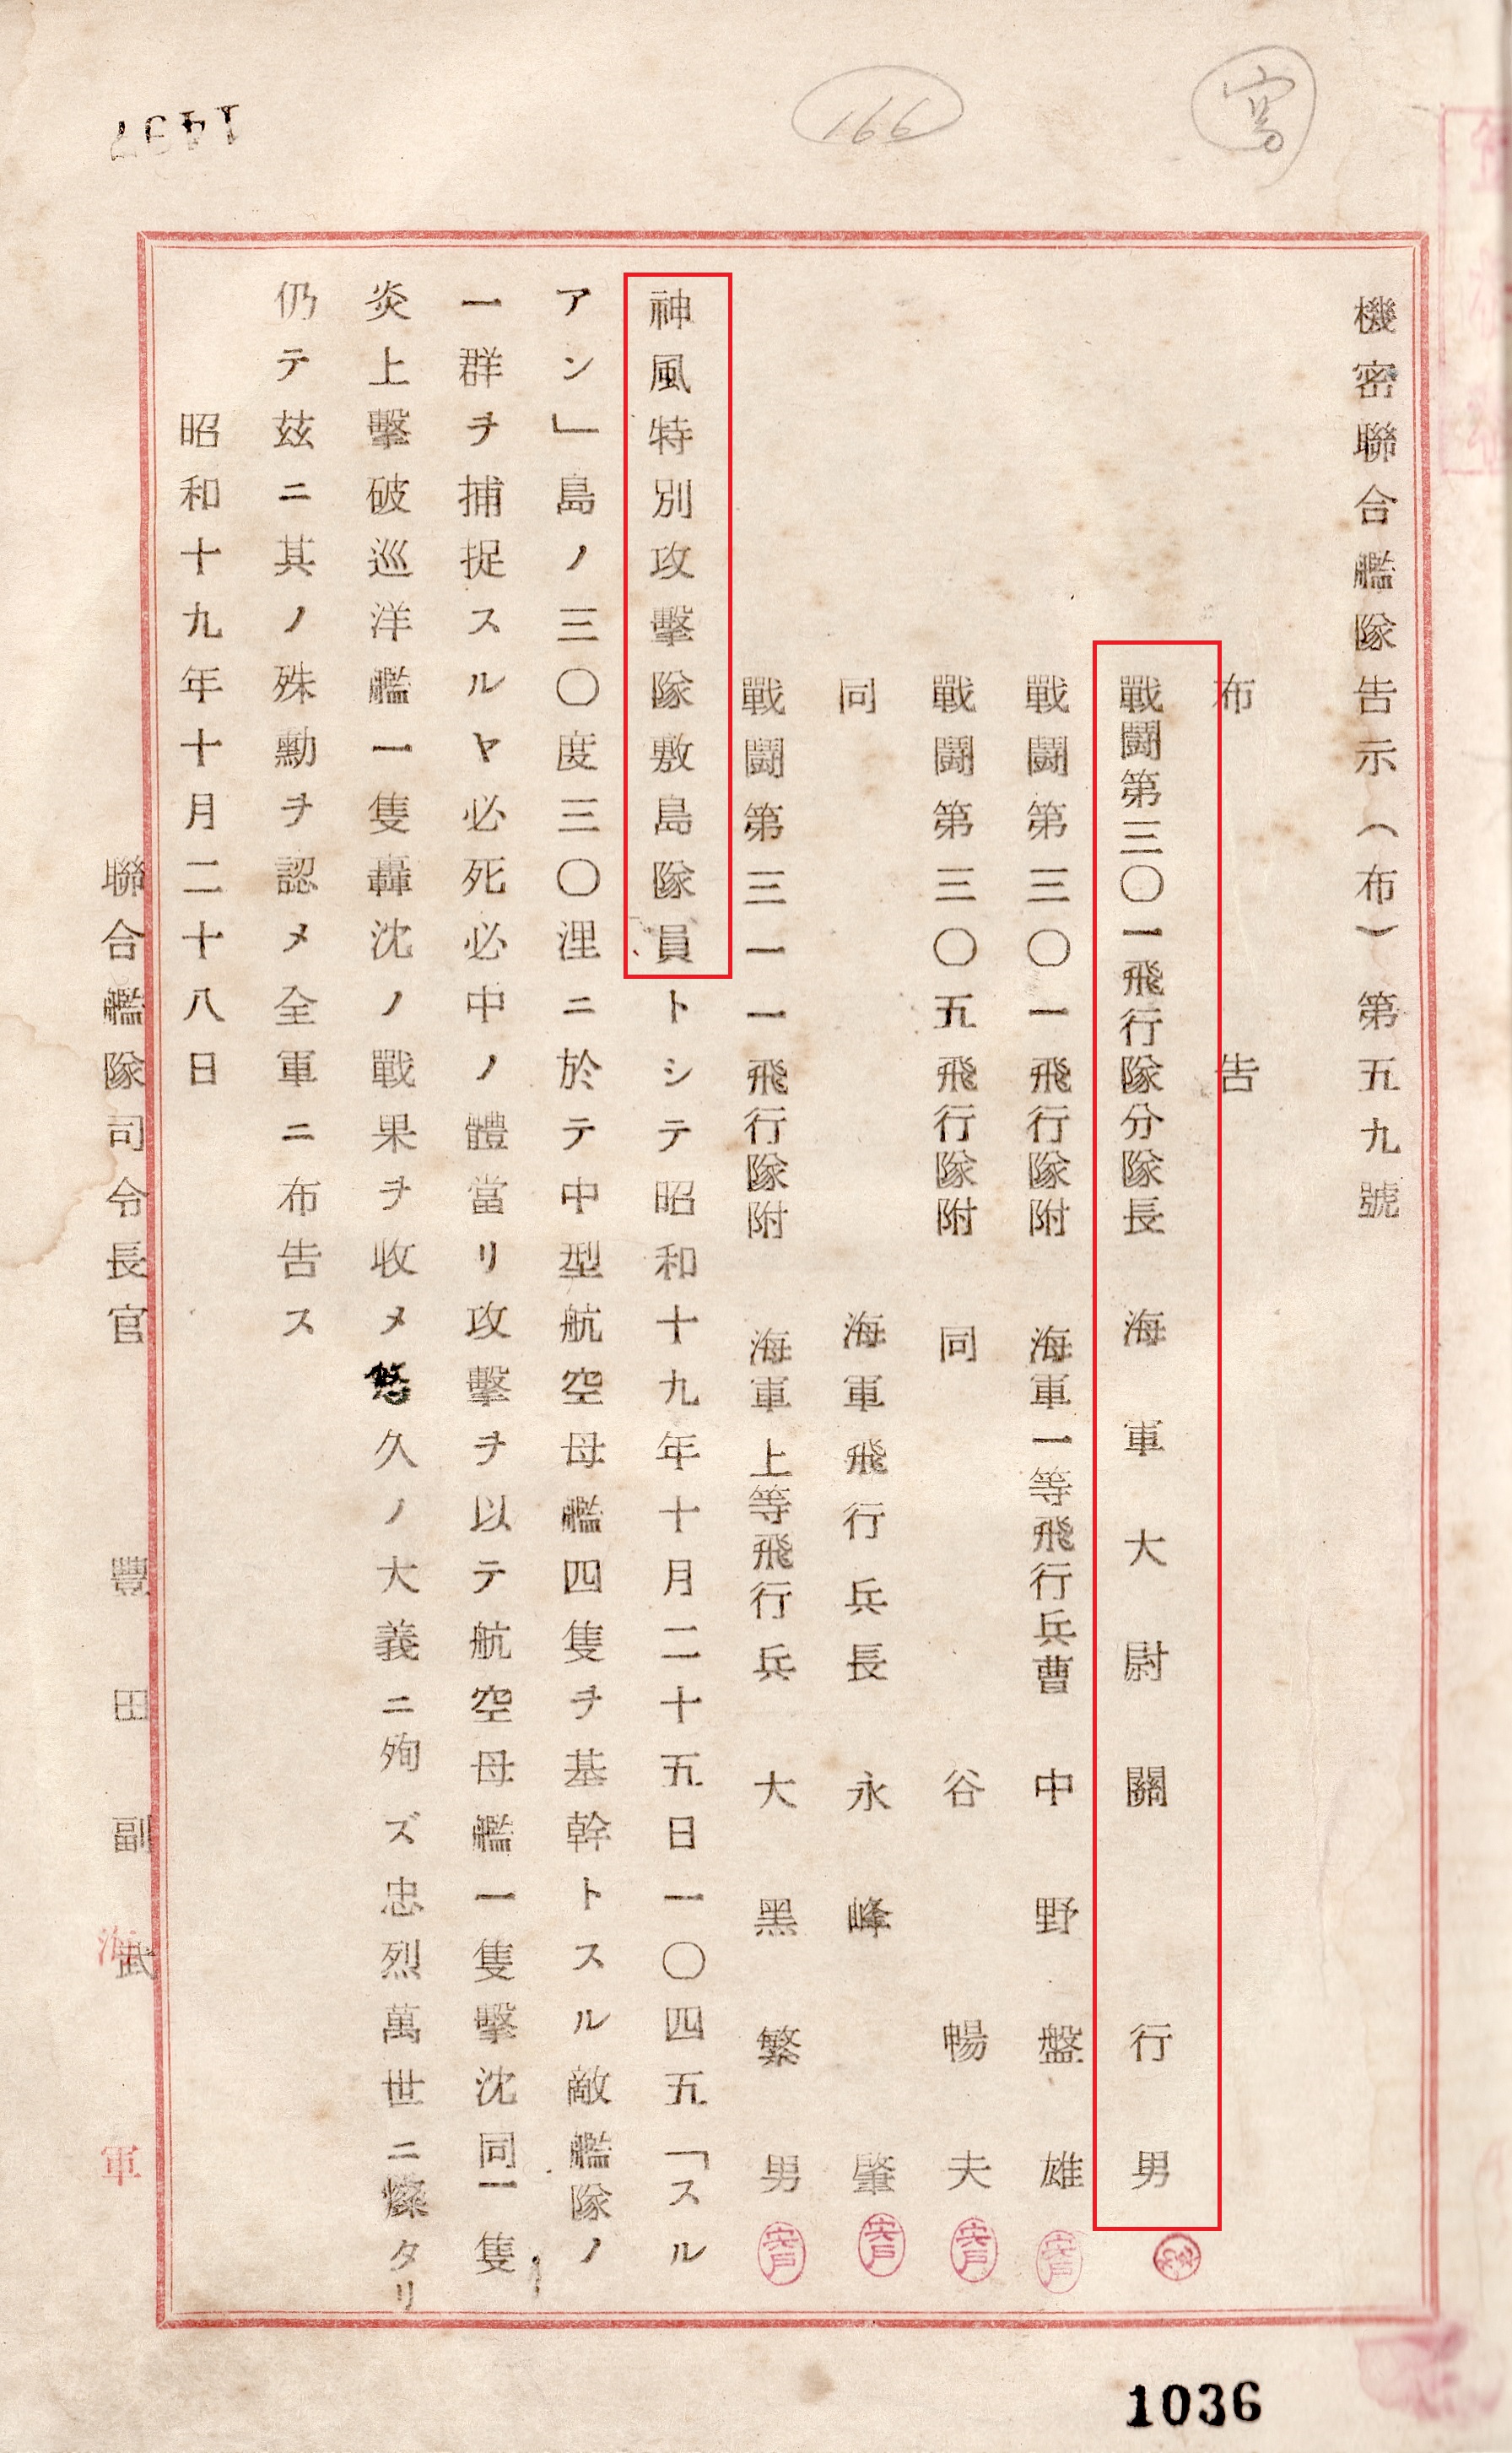 寫
166
機密聯合艦隊告示(布)第五九號
布告
戰鬪第三〇一飛行隊分隊長 海軍大尉 關行男
戰鬪第三〇一飛行隊附 海軍一等飛行兵曹 中野盤雄
戰鬪第三〇五飛行隊附 同 谷暢夫
同 海軍飛行兵長 永峰肇
戰鬪第三一一飛行隊附 海軍上等飛行兵 大黑繁男
神風特別攻擊隊敷島隊員トシテ昭和十九年十月二十五日一〇四五「スル
アン」島ノ三〇度三〇浬ニ於テ中型航空母艦四隻ヲ基幹トスル敵艦隊ノ
一群ヲ捕捉スルヤ必死必中ノ體當リ攻擊ヲ以テ航空母艦一隻擊沈同一隻
炎上擊破巡洋艦一隻轟沈ノ戰果ヲ收メ悠久ノ大義ニ殉ズ忠烈萬世ニ燦タリ
仍テ茲ニ其ノ殊勳ヲ認メ全軍ニ布告ス
昭和十九年十月二十八日
聯合艦隊司令長官 豐田副武
海軍
1036